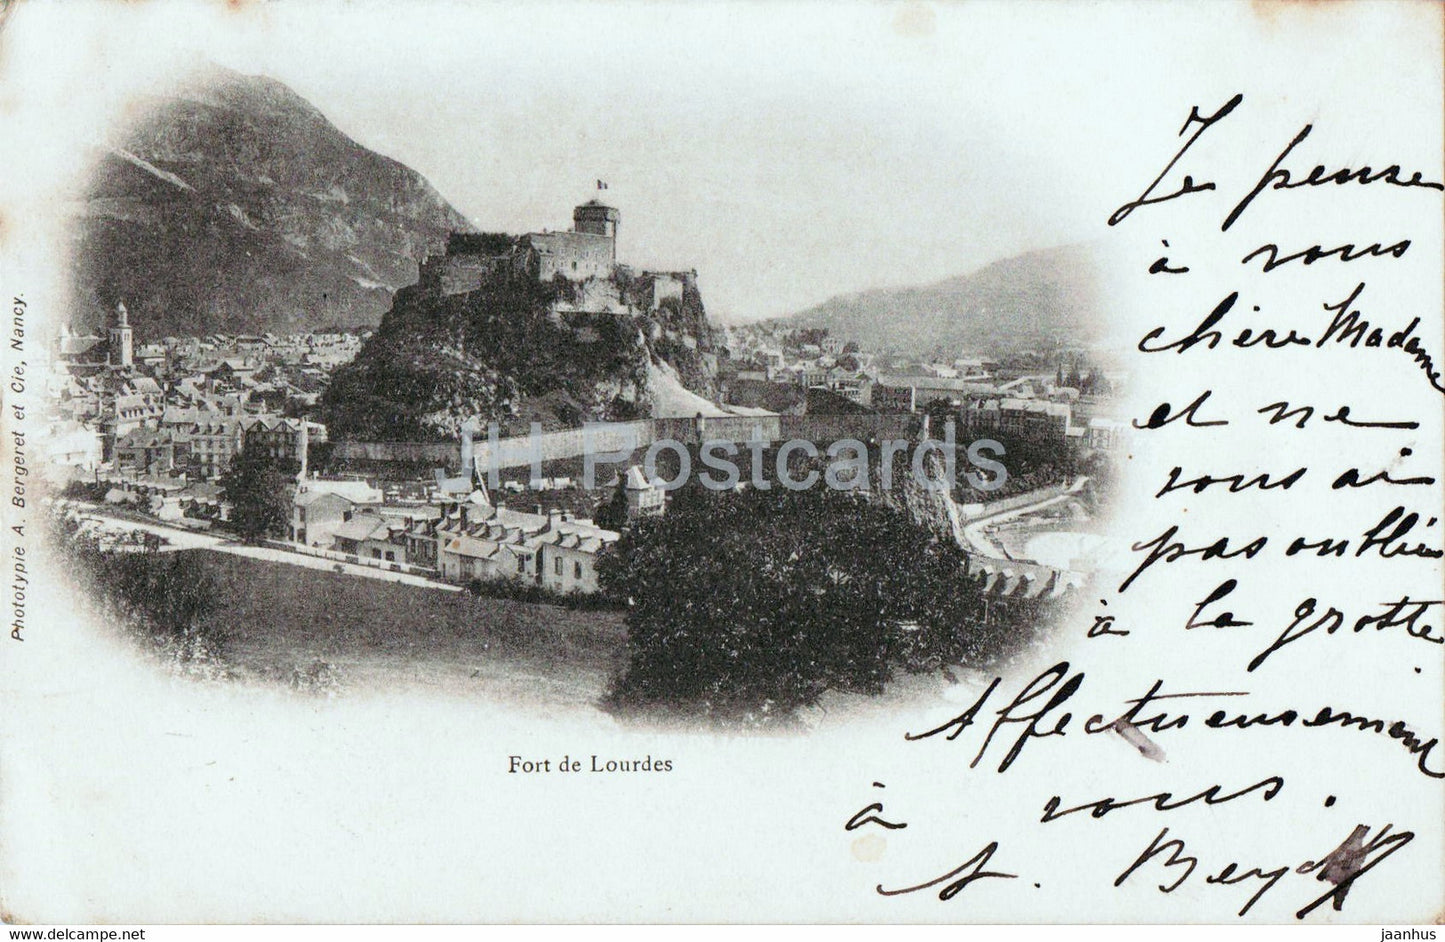 Je pense
à vous
chère Madame
et ne
vous ai
pas oubliée
à la grotte
Affectueusement
à vous.
A.
Fort de Lourdes
Phototypie A. Bergeret et Cie, Nancy.
JH Postcards
www.delcampe.net
jaanhus